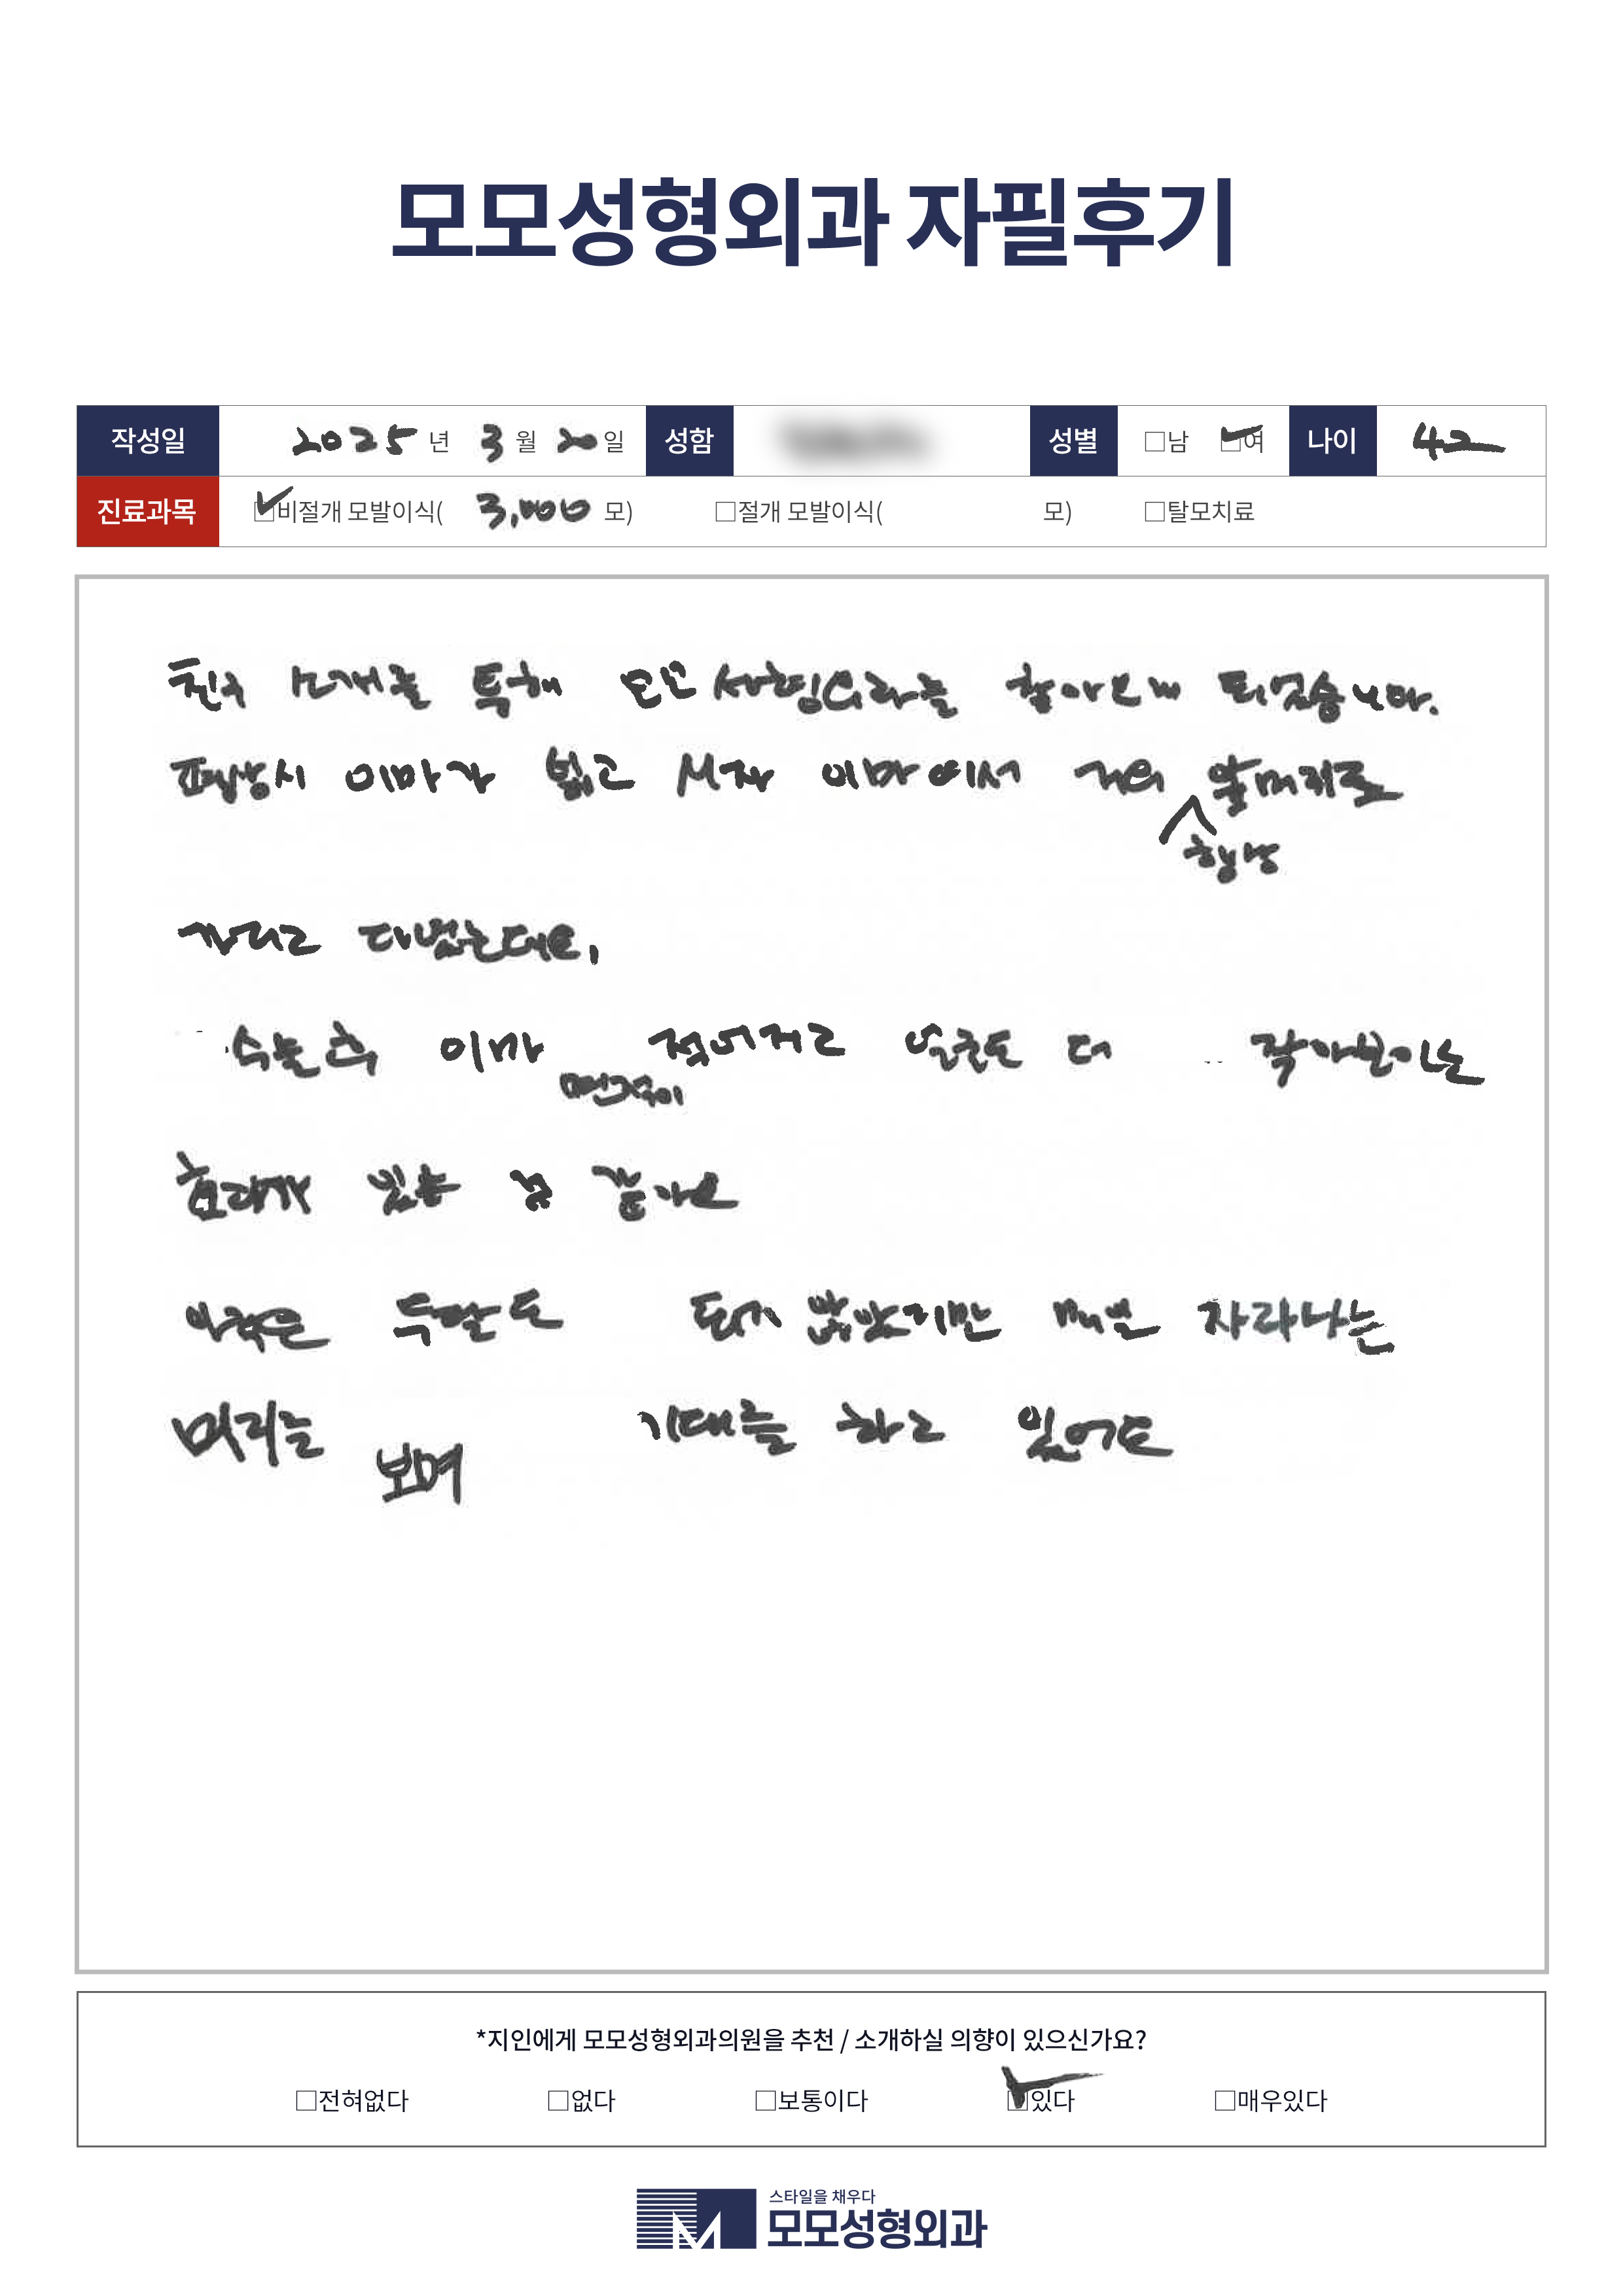 모모성형외과 자필후기
작성일 2025 년 3 월 20 일 성함 성별 □남 ☑여 나이 42
진료과목 ☑비절개 모발이식( 3,000 모) □절개 모발이식( 모) □탈모치료
친구 소개를 특해 모모성형외과를 찾아오게 되었습니다.
평상시 이마가 넓고 M자 이마여서 거의 앞머리로
항상
가리고 다녔는데요,
수술후 이마 적어지고 얼굴도 더 작아보이는
면적이
효과가 있는 것 같아요
아직은 두달도 되지 않았지만 매일 자라나는
머리를 보며 기대를 하고 있어요
*지인에게 모모성형외과의원을 추천 / 소개하실 의향이 있으신가요?
□전혀없다 □없다 □보통이다 ☑있다 □매우있다
스타일을 채우다
모모성형외과